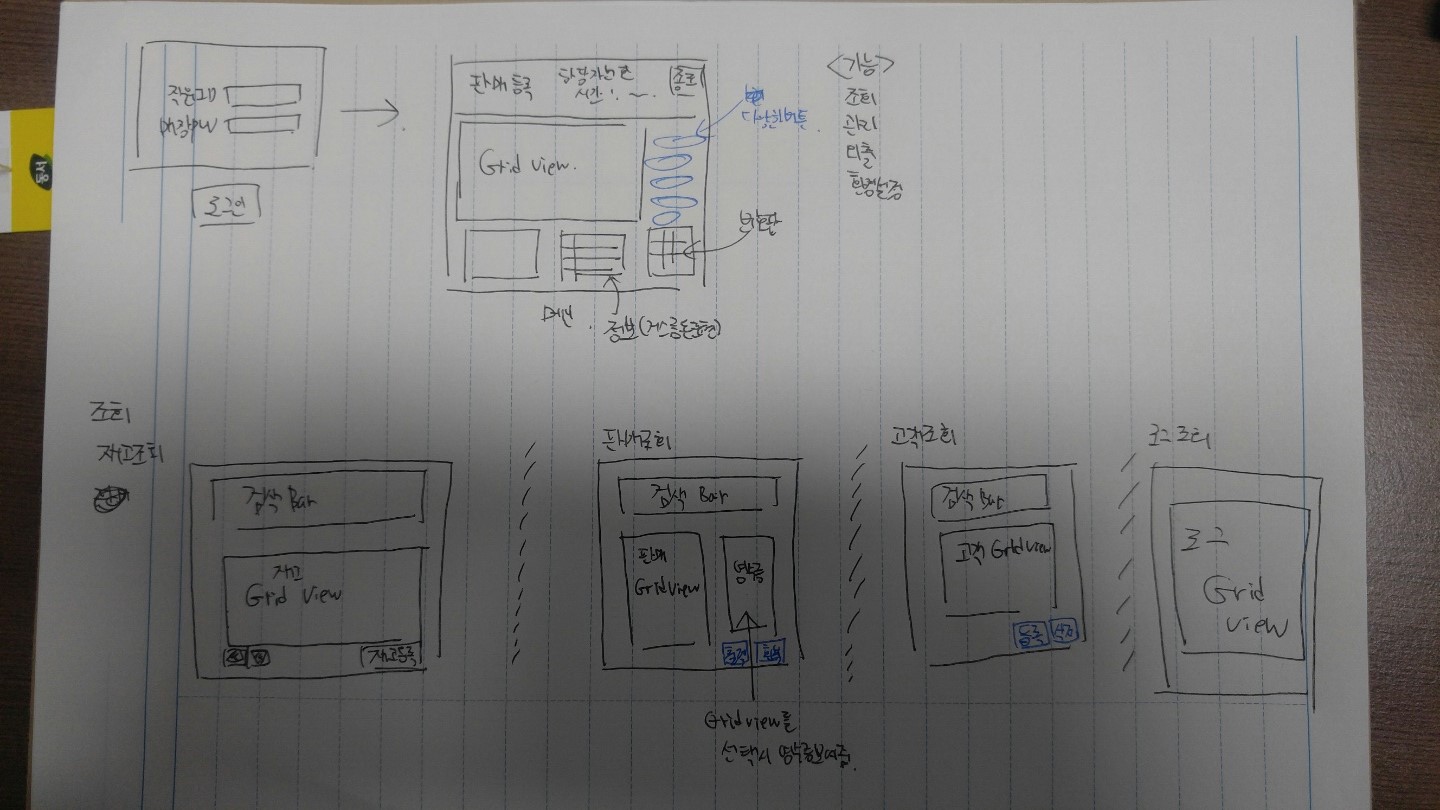 직원ID
매장PW
로그인
판매등록
담당자:
시간: ~.
종료
Grid view.
다양한버튼.
번호판
메인.
<기능>
조회
관리
매출
환경설정
조회
재고조회
검색 Bar
재고
Grid View
재고등록
판매조회
검색 Bar
판매
Grid View
영수증
출력
Gridview를
선택시 영수증보여줌.
고객조회
검색 Bar
고객 Gridview
등록
삭제
로그조회
로그
Grid
view